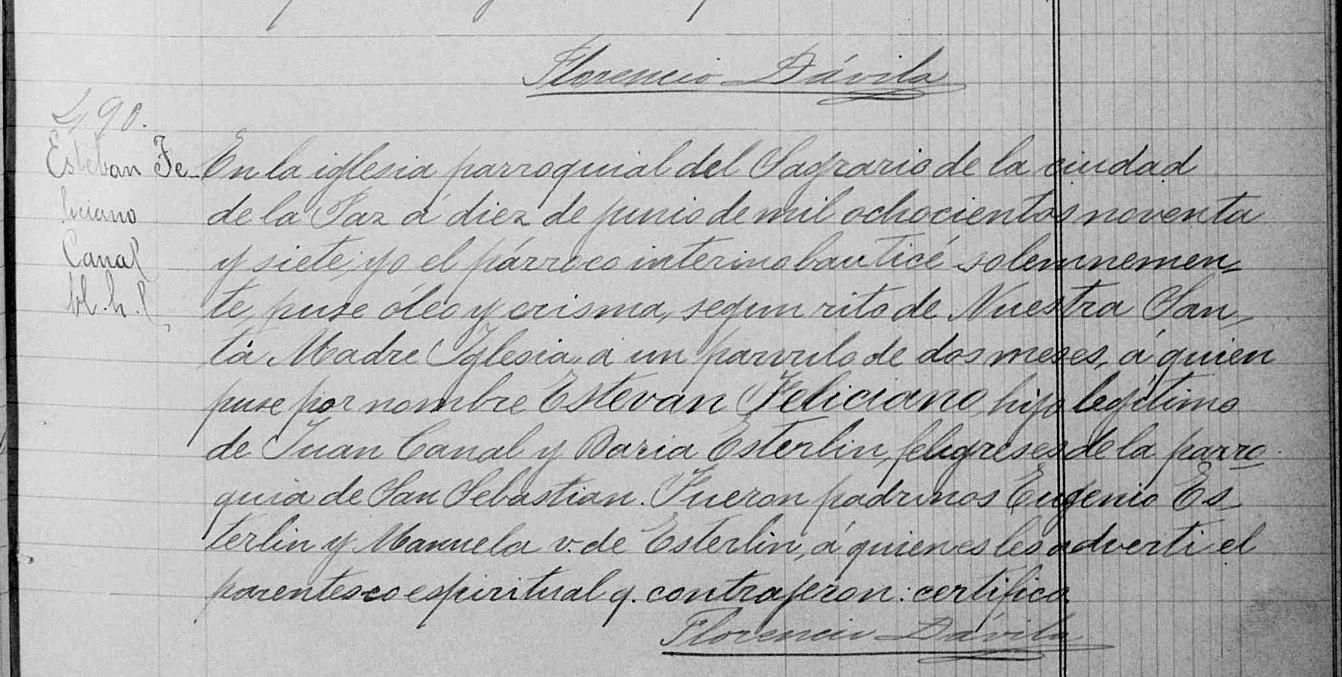 Florencio Dávila
490.
Esteban Fe-
liciano
Canal
bl. h. l.
En la iglesia parroquial del Sagrario de la ciudad
de la Paz á diez de junio de mil ochocientos noventa
y siete; yo el párroco interino bauticé solemnemen-
te, puse óleo y crisma, segun rito de Nuestra San-
ta Madre Iglesia, a un parvulo de dos meses, á quien
puse por nombre Estevan Feliciano, hijo legitimo
de Juan Canal y Daria Esterlin, feligreses de la parro-
quia de San Sebastian. Fueron padrinos Eugenio Es-
terlin y Manuela v. de Esterlin, á quienes les adverti el
parentesco espiritual q. contrajeron: certifico.
Florencio Dávila